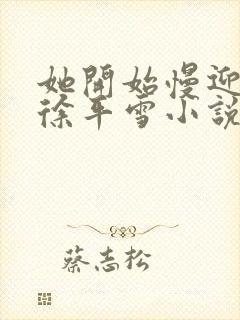 她開始慢迎
徐平雪小說
蔡志松